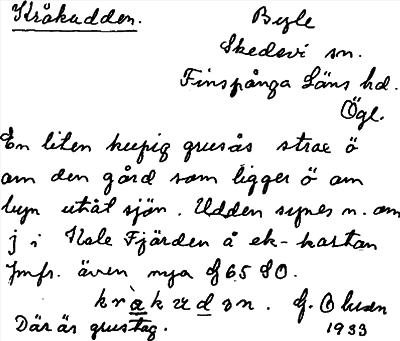 Kråkudden.
Byle
Skedevi sn.
Finspånga Läns hd.
Ögl.
En liten kupig grusås strax ö
om den gård som ligger ö om
byn utåt sjön. Udden synes n. om
j i Kale Fjärden å ek-kartan
Jmfr. även nya
krà̱kud̲ən. G. Olsson
Där är grustag. 1933